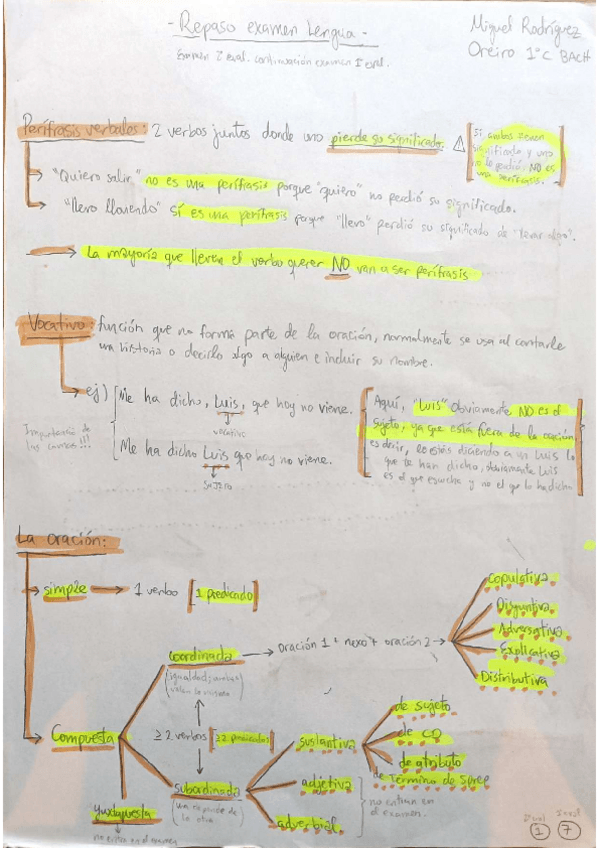 - Repaso examen Lengua -
Miguel Rodríguez
Oreiro 1ºC BACH
Examen 2 eval. continuación examen 1 eval.
Perífrasis verbales: 2 verbos juntos donde uno pierde su significado.
Si ambos tienen
significado y uno
no lo perdió, NO es
una perífrasis.
→ "Quiero salir" no es una perífrasis porque "quiero" no perdió su significado.
→ "llevo llorando" sí es una perífrasis porque "llevo" perdió su significado de "llevar algo".
→ La mayoría que lleven el verbo querer NO van a ser perífrasis
Vocativo: función que no forma parte de la oración, normalmente se usa al contarle
una historia o decirle algo a alguien e incluir su nombre.
→ ej) Me ha dicho, Luis, que hoy no viene.
vocativo
Importancia de
las comas!!!
Me ha dicho Luis que hoy no viene.
sujeto
Aquí, "Luis" obviamente NO es el
sujeto, ya que está fuera de la oración
es decir, le estás diciendo a un Luis lo
que te han dicho, obviamente Luis
es el que escucha y no el que lo ha dicho
La oración:
→ simple → 1 verbo [1 predicado]
Compuesta
coordinada → oración 1 + nexo + oración 2 →
copulativa
Disyuntiva
Adversativa
Explicativa
Distributiva
≥ 2 verbos [≥2 predicados]
subordinada
(una depende de
la otra
sustantiva
de sujeto
de CD
de atributo
de término de Sprep
adjetiva
adverbial
no entran en
el examen.
yuxtapuesta
no entra en el examen
1
7